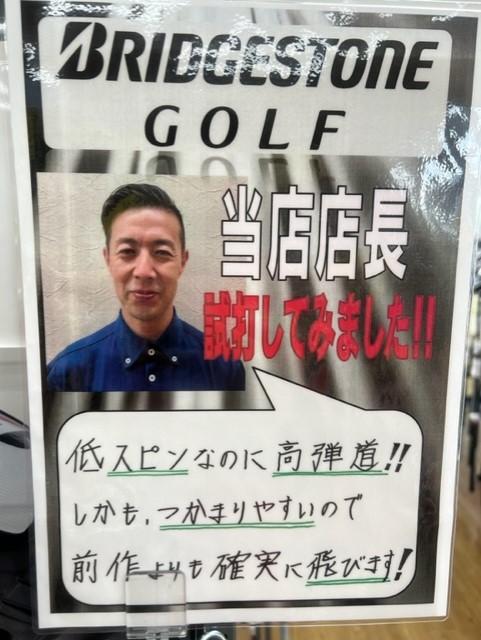 BRIDGESTONE
GOLF
当店店長
試打してみました!!
低スピンなのに高弾道!!
しかも、つかまりやすいので
前作よりも確実に飛びます!